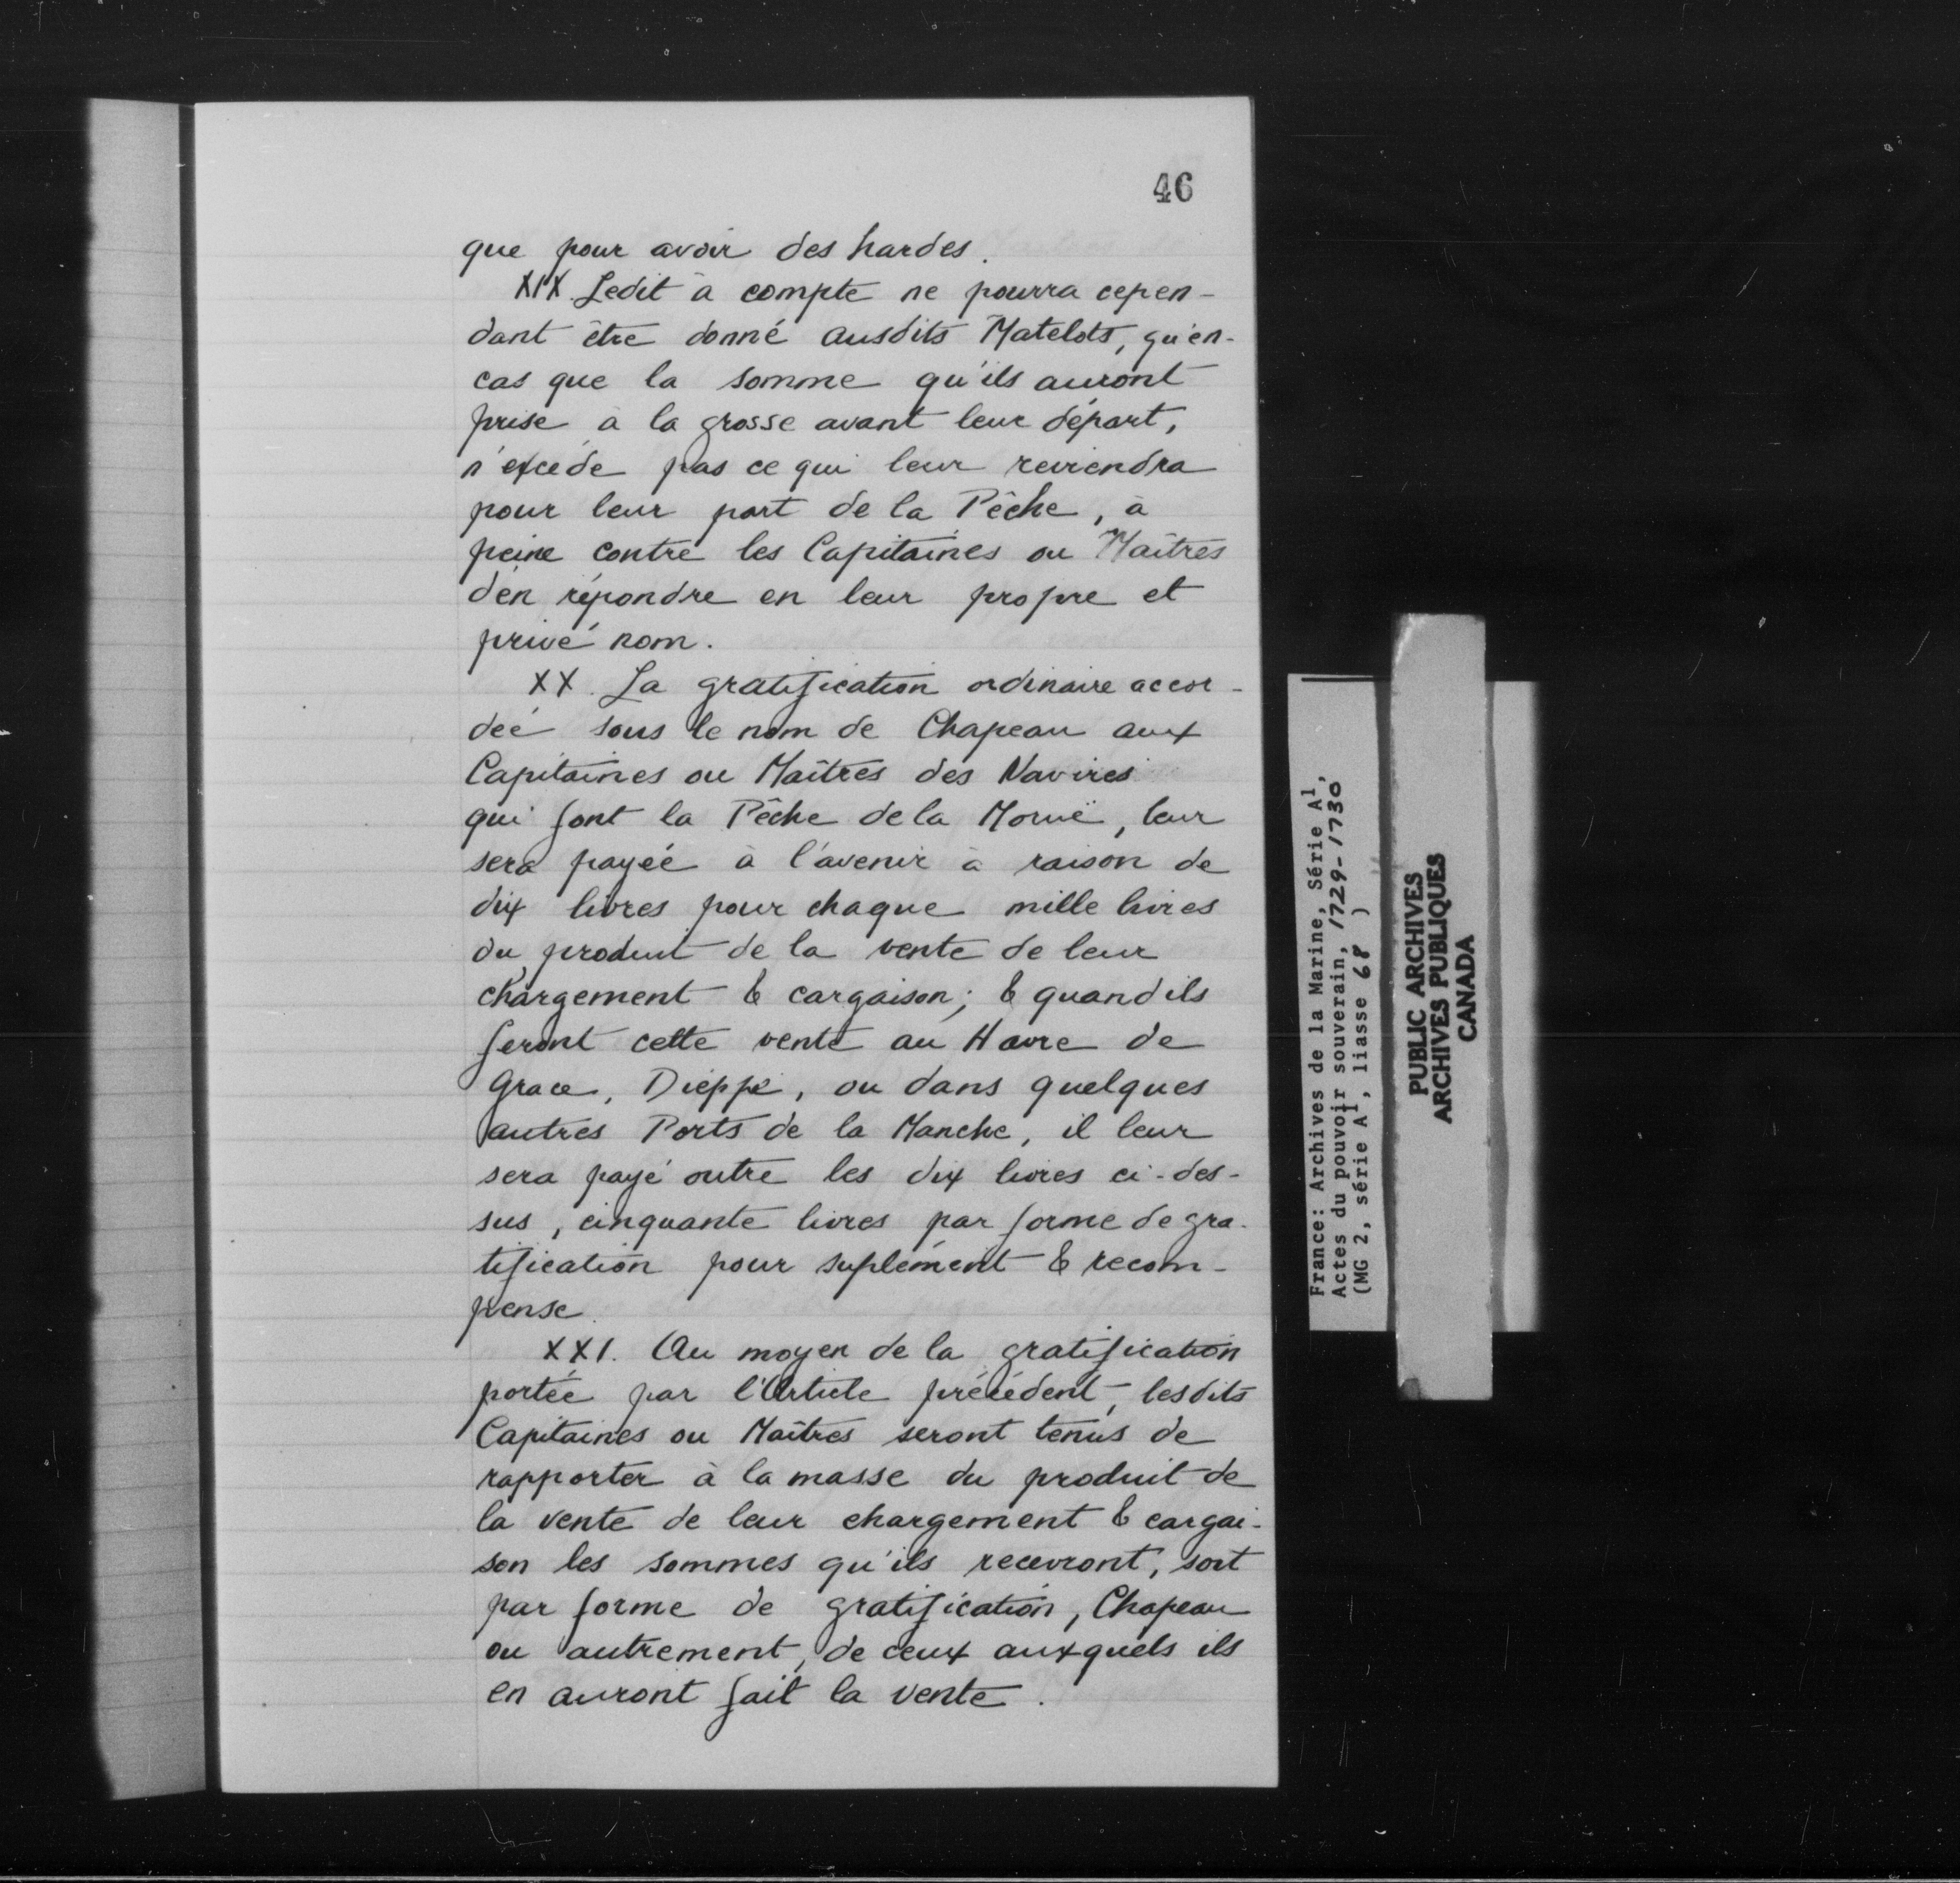 46
que pour avoir des hardes.
XIX. Ledit à compte ne pourra cepen-
dant être donné ausdits Matelots, qu'en-
cas que la somme qu'ils auront
prise à la grosse avant leur départ,
n'excède pas ce qui leur reviendra
pour leur part de la Pêche, à
peine contre les Capitaines ou Maîtres
d'en répondre en leur propre et
privé nom.
XX. La gratification ordinaire accor-
dée sous le nom de Chapeau aux
Capitaines ou Maîtres des Navires
qui font la Pêche de la Moruë, leur
sera payée à l'avenir à raison de
dix livres pour chaque mille livres
du produit de la vente de leur
chargement & cargaison; & quand ils
feront cette vente au Havre de
Grace, Dieppe, ou dans quelques
autres Ports de la Manche, il leur
sera payé outre les dix livres ci-des-
sus, cinquante livres par forme de gra-
tification pour suplément & recom-
pense.
XXI. Au moyen de la gratification
portée par l'Article précédent, lesdits
Capitaines ou Maîtres seront tenus de
rapporter à la masse du produit de
la vente de leur chargement & cargai-
son les sommes qu'ils recevront, soit
par forme de gratification, Chapeau
ou autrement, de ceux auxquels ils
en auront fait la vente.
France: Archives de la Marine, Série A1,
Actes du pouvoir souverain, 1729-1730
(MG 2, série A1, liasse 68 )
PUBLIC ARCHIVES
ARCHIVES PUBLIQUES
CANADA